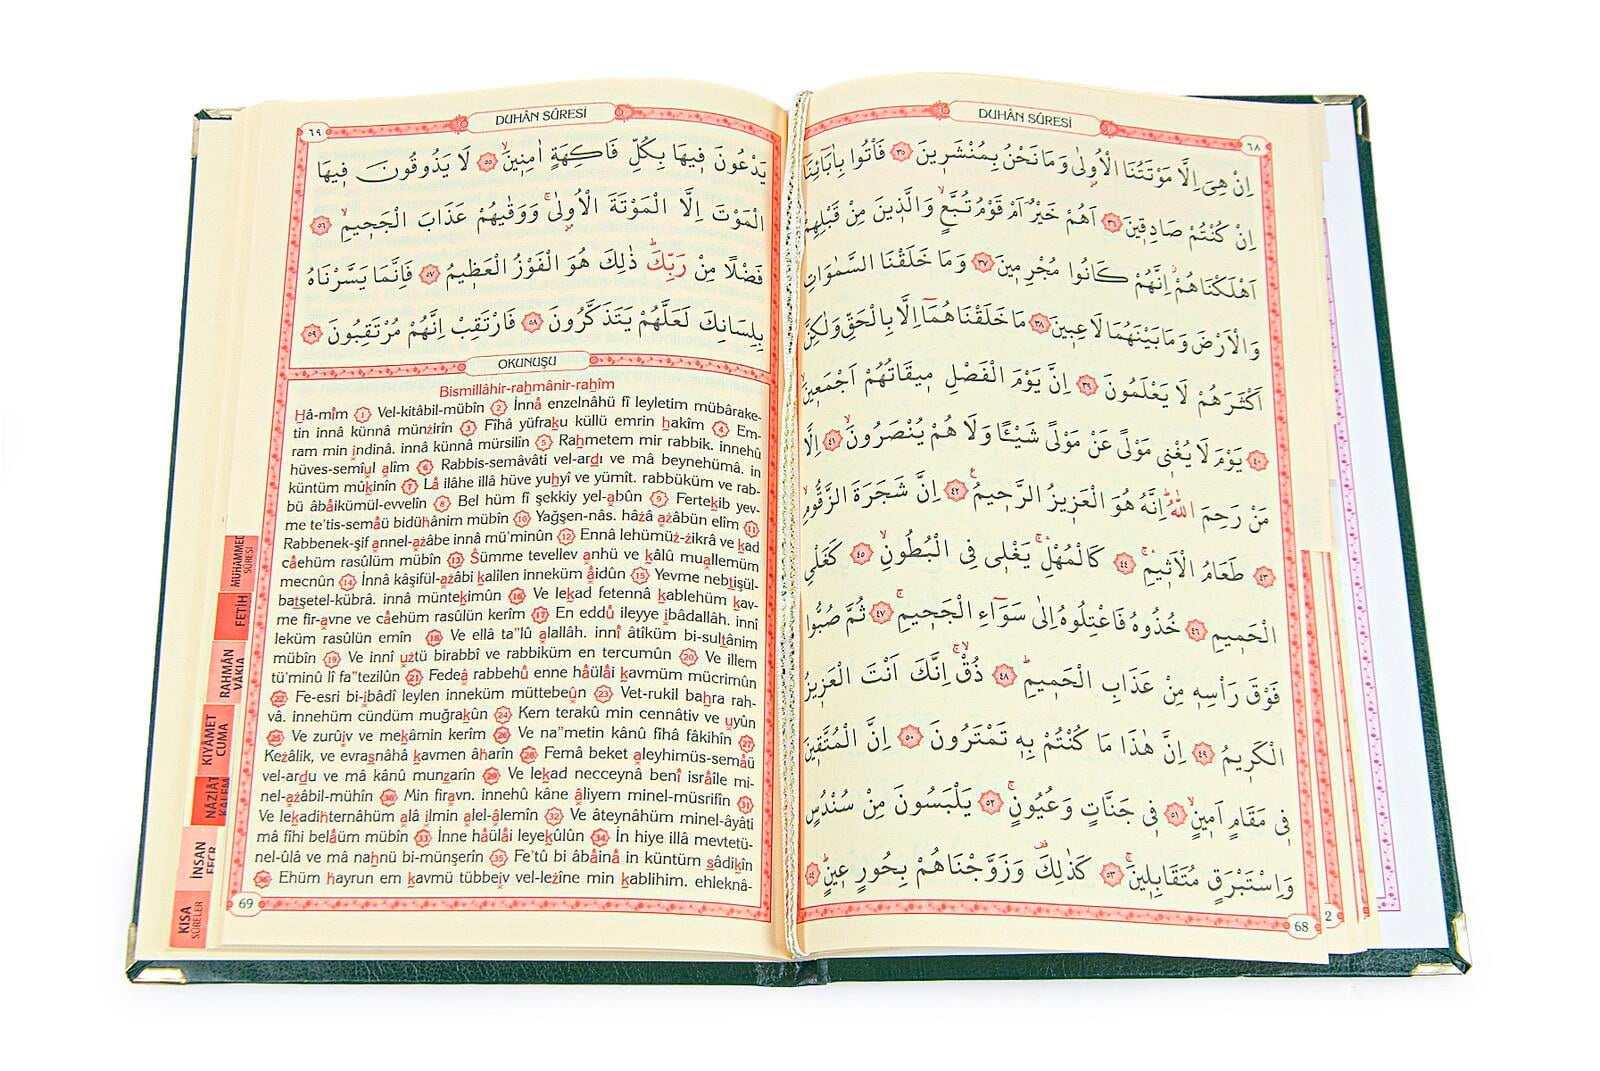 DUHÂN SÛRESİ
٦٨
اِنْ هِيَ اِلَّا مَوْتَتُنَا الْاُو۫لٰى وَمَا نَحْنُ بِمُنْشَر۪ينَ ٣٥ فَأْتُوا بِاٰبَٓائِنَٓا
اِنْ كُنْتُمْ صَادِق۪ينَ ٣٦ اَهُمْ خَيْرٌ اَمْ قَوْمُ تُبَّعٍۙ وَالَّذ۪ينَ مِنْ قَبْلِهِمْ
اَهْلَكْنَاهُمْۘ اِنَّهُمْ كَانُوا مُجْرِم۪ينَ ٣٧ وَمَا خَلَقْنَا السَّمٰوَاتِ
وَالْاَرْضَ وَمَا بَيْنَهُمَا لَاعِب۪ينَ ٣٨ مَا خَلَقْنَاهُمَٓا اِلَّا بِالْحَقِّ وَلٰكِنَّ
اَكْثَرَهُمْ لَا يَعْلَمُونَ ٣٩ اِنَّ يَوْمَ الْفَصْلِ م۪يقَاتُهُمْ اَجْمَع۪ينَۙ
٤٠ يَوْمَ لَا يُغْن۪ي مَوْلًى عَنْ مَوْلًى شَيْـًٔا وَلَا هُمْ يُنْصَرُونَۙ ٤١ اِلَّا
مَنْ رَحِمَ اللّٰهُۜ اِنَّهُ هُوَ الْعَز۪يزُ الرَّح۪يمُ۟ ٤٢ اِنَّ شَجَرَةَ الزَّقُّومِۙ
٤٣ طَعَامُ الْاَث۪يمِۚ ٤٤ كَالْمُهْلِۚ يَغْل۪ي فِي الْبُطُونِۙ ٤٥ كَغَلْيِ
الْحَم۪يمِ ٤٦ خُذُوهُ فَاعْتِلُوهُ اِلٰى سَوَٓاءِ الْجَح۪يمِۚ ٤٧ ثُمَّ صُبُّوا
فَوْقَ رَأْسِه۪ مِنْ عَذَابِ الْحَم۪يمِۜ ٤٨ ذُقْۙۚ اِنَّكَ اَنْتَ الْعَز۪يزُ
الْكَر۪يمُ ٤٩ اِنَّ هٰذَا مَا كُنْتُمْ بِه۪ تَمْتَرُونَ ٥٠ اِنَّ الْمُتَّق۪ينَ
ف۪ي مَقَامٍ اَم۪ينٍۙ ٥١ ف۪ي جَنَّاتٍ وَعُيُونٍۚ ٥٢ يَلْبَسُونَ مِنْ سُنْدُسٍ
وَاِسْتَبْرَقٍ مُتَقَابِل۪ينَۚ ٥٣ كَذٰلِكَ۠ وَزَوَّجْنَاهُمْ بِحُورٍ ع۪ينٍۜ ٥٤
68
2
DUHÂN SÛRESİ
٦٩
يَدْعُونَ ف۪يهَا بِكُلِّ فَاكِهَةٍ اٰمِن۪ينَۙ ٥٥ لَا يَذُوقُونَ ف۪يهَا
الْمَوْتَ اِلَّا الْمَوْتَةَ الْاُو۫لٰىۚ وَوَقٰيهُمْ عَذَابَ الْجَح۪يمِۙ ٥٦
فَضْلًا مِنْ رَبِّكَۜ ذٰلِكَ هُوَ الْفَوْزُ الْعَظ۪يمُ ٥٧ فَاِنَّمَا يَسَّرْنَاهُ
بِلِسَانِكَ لَعَلَّهُمْ يَتَذَكَّرُونَ ٥٨ فَارْتَقِبْ اِنَّهُمْ مُرْتَقِبُونَ ٥٩
OKUNUŞU
Bismillâhir-rahmânir-rahîm
Hâ-mîm 1 Vel-kitâbil-mübîn 2 İnnâ enzelnâhü fî leyletim mübârake-
tin innâ künnâ münzirîn 3 Fîhâ yüfraku küllü emrin hakîm 4 Em-
ram min indinâ. innâ künnâ mürsilîn 5 Rahmetem mir rabbik. innehû
hüves-semîul alîm 6 Rabbis-semâvâti vel-ardı ve mâ beynehümâ. in
küntüm mûkinîn 7 Lâ ilâhe illâ hüve yuhyî ve yümît. rabbüküm ve rab-
bü âbâikümül-evvelîn 8 Bel hüm fî şekkiy yel-abûn 9 Fertekib yev-
me te'tis-semâü bidühânim mübîn 10 Yağşen-nâs. hâzâ azâbün elîm 11
Rabbenek-şif annel-azâbe innâ mü'minûn 12 Ennâ lehümüz-zikrâ ve kad
câehüm rasûlüm mübîn 13 Sümme tevellev anhü ve kâlû muallemüm
mecnûn 14 İnnâ kâşifül-azâbi kalîlen inneküm âidûn 15 Yevme nebtışül-
batşetel-kübrâ. innâ müntekimûn 16 Ve lekad fetennâ kablehüm kav-
me fir-avne ve câehüm rasûlün kerîm 17 En eddû ileyye ibâdallâh. innî
leküm rasûlün emîn 18 Ve ellâ ta"lû alallâh. innî âtîküm bi-sultânim
mübîn 19 Ve innî uztü birabbî ve rabbiküm en tercumûn 20 Ve illem
tü'minû lî fa"tezilûn 21 Fedeâ rabbehû enne hâülâi kavmüm mücrimûn
22 Fe-esri bi-ibâdî leylen inneküm müttebeûn 23 Vet-rukil bahra rah-
vâ. innehüm cündüm muğrakûn 24 Kem terakû min cennâtiv ve uyûn
25 Ve zurûıv ve mekâmin kerîm 26 Ve na"metin kânû fîhâ fâkihîn 27
Kezâlik, ve evrasnâhâ kavmen âharîn 28 Femâ beket aleyhimüs-semâü
vel-ardu ve mâ kânû munzarîn 29 Ve lekad necceynâ benî isrâîle mi-
nel-azâbil-mühîn 30 Min firavn. innehû kâne âliyem minel-müsrifîn 31
Ve lekadihternâhüm alâ ilmin alel-âlemîn 32 Ve âteynâhüm minel-âyâti
mâ fîhi belâüm mübîn 33 İnne hâülâi leyekûlûn 34 İn hiye illâ mevtetü-
nel-ûlâ ve mâ nahnü bi-münşerîn 35 Fe'tû bi âbâinâ in küntüm sâdikîn
36 Ehüm hayrun em kavmü tübbeıv vel-lezîne min kablihim. ehleknâ-
69
MUHAMMED
SÛRESİ
FETİH
RAHMÂN
VÂKIA
KIYÂMET
CUMA
NÂZİÂT
KALEM
İNSAN
FECR
KISA
SÛRELER